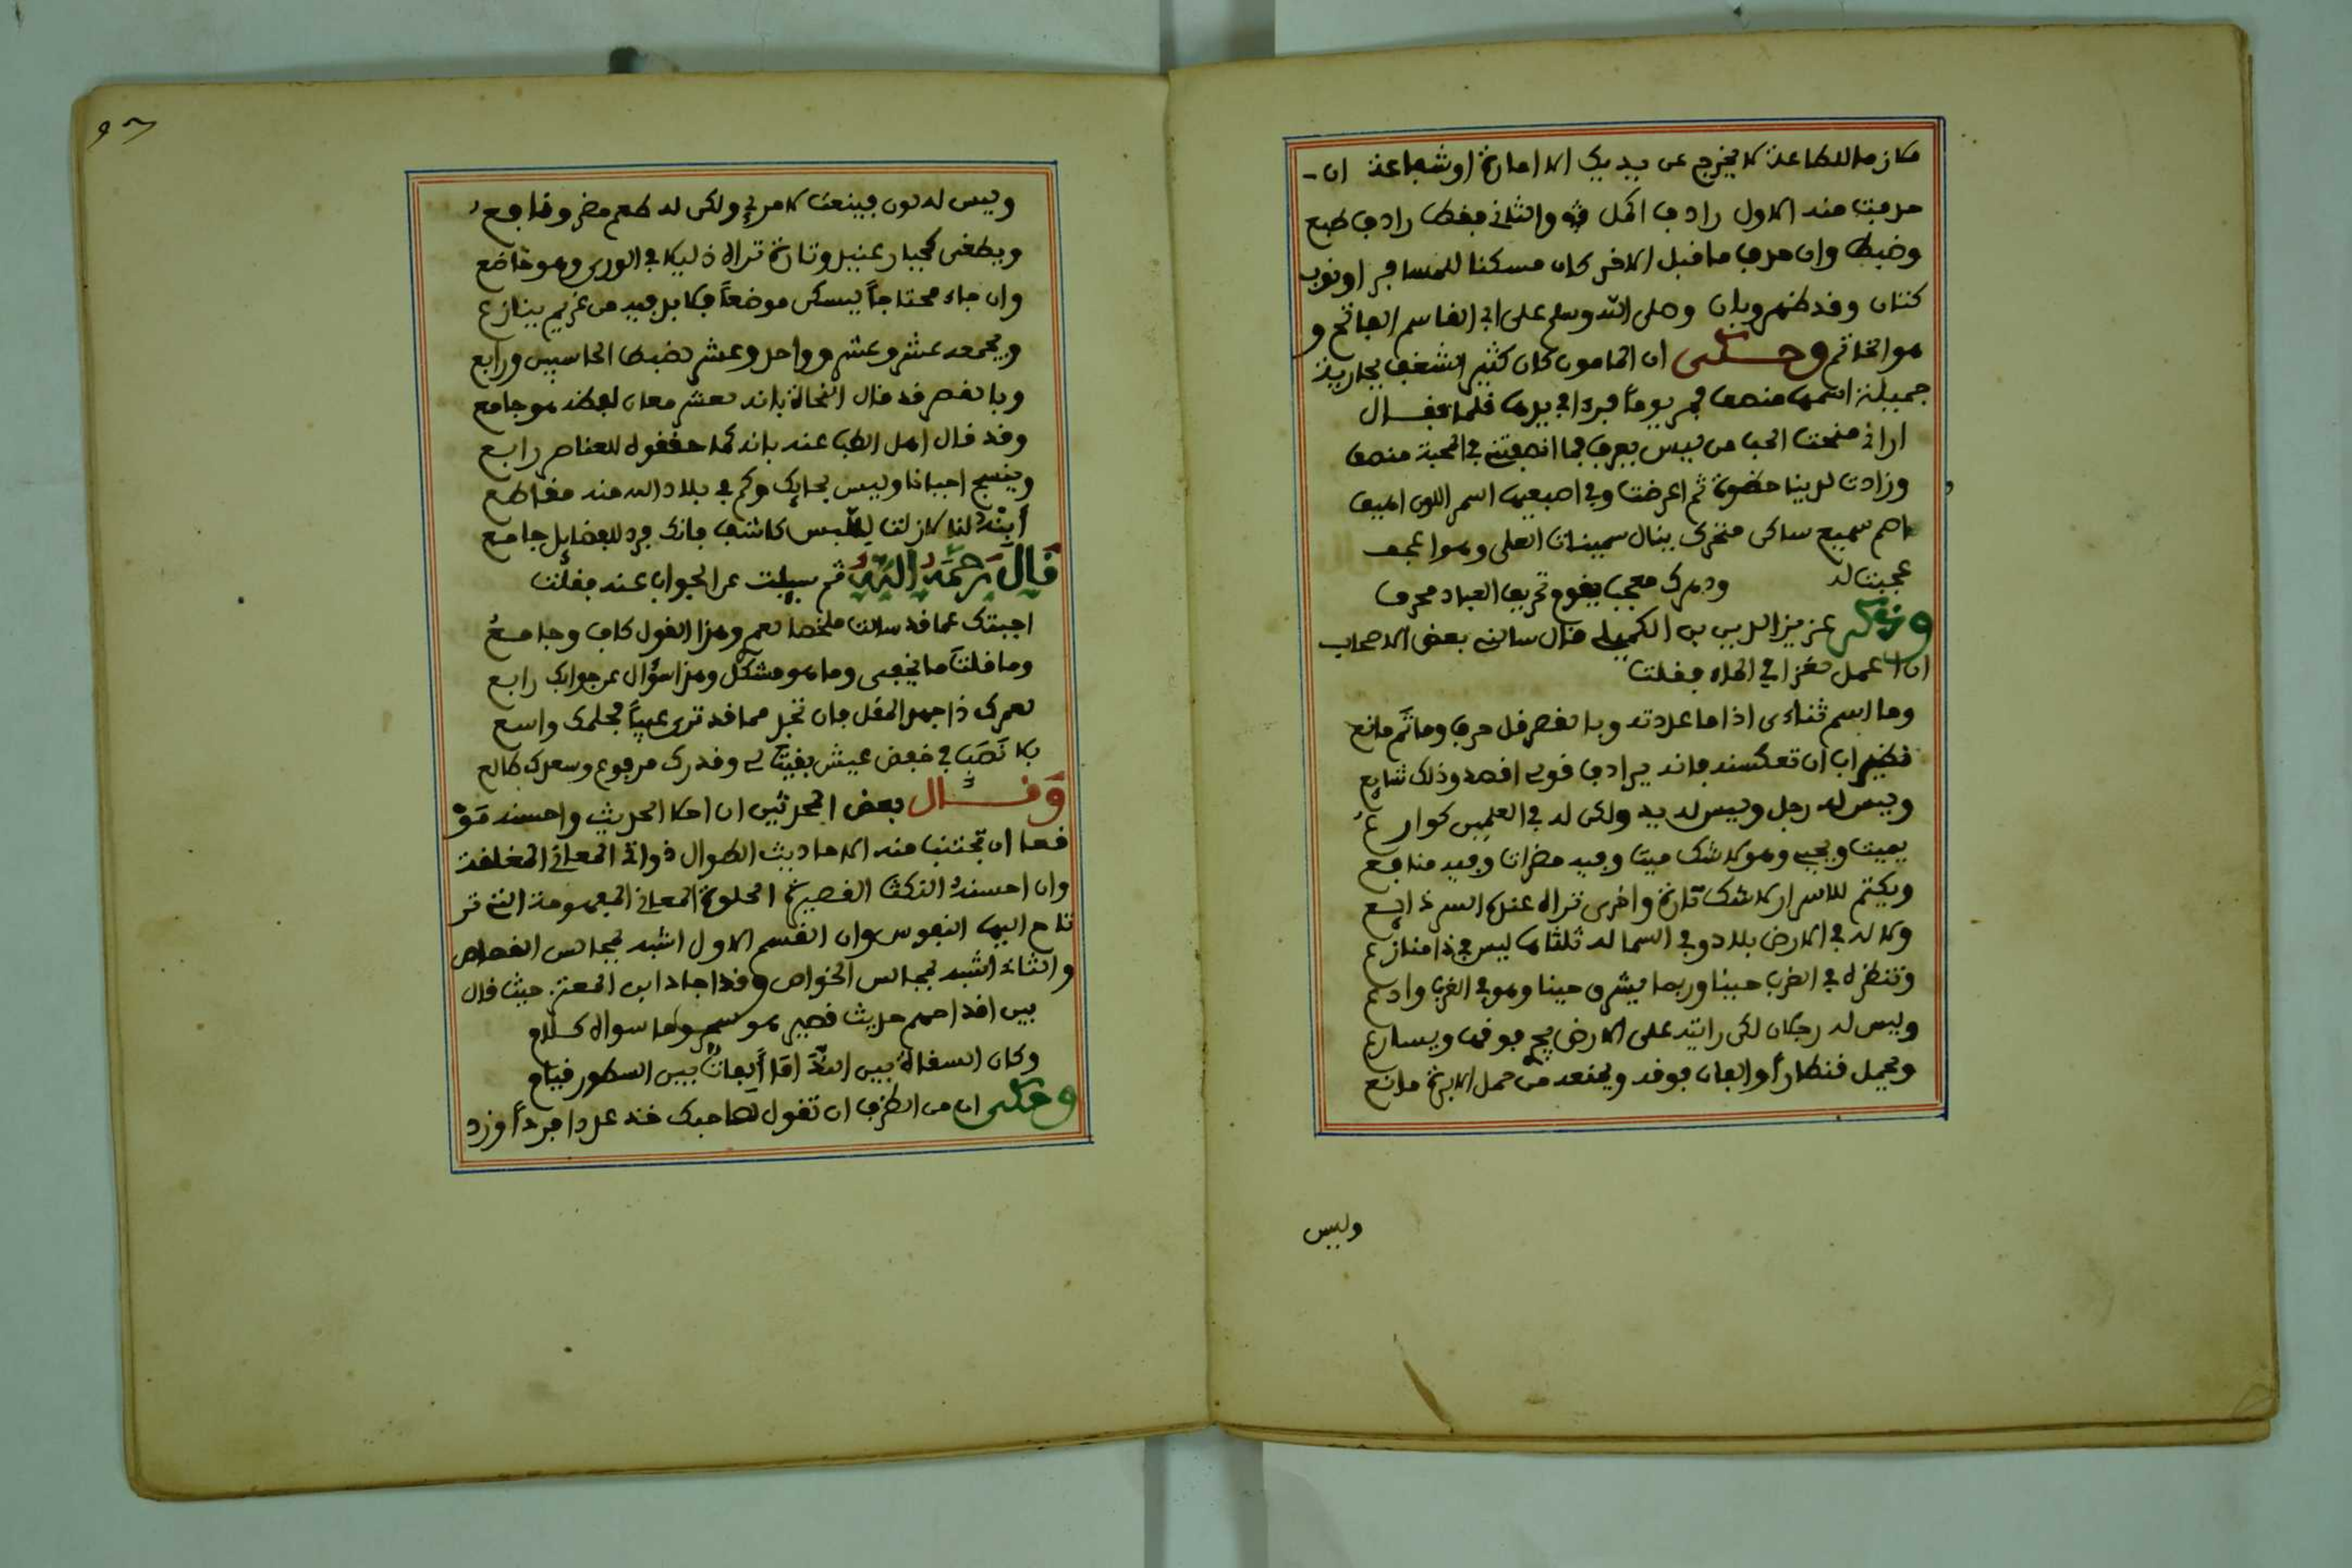 مكازما للطاعة لا يخرج عن يديك الا امارة او شجاعة ان
حذفت منه الاول رادف اكل والثاني فقط رادف طبع
وضبط وان حذف ما قبل الاخر كان مسكنا للمسافر او ثوب
كتان وقد ظهر وبان وصلى الله وسلم على ابي القاسم الفاتح و
هو الخاتم وحكى ان المامون كان كثير الشغف بجارية
جميلة اسمها منصف يوما في يدها فلما فقال
اراني منحت الحب من ليس يعرف فما انصفتني في المحبة منصف
وزادت لدينا حظوة ثم اعرضت وفي اصبعيها اسمر اللون اهيف
اصم سميع ساكن متحرك ينال سمينات العلى وهو اعجف
عجبت له ودهرك معجب يقوم تحريف العباد محرف
عزيز الدين بن قال سالني بعض الاصحاب
ان اعمل لغزا في الماء فقلت
وما اسم ثناءى اذا ما عددته وبا لفصر قل حرف وما ثم مانع
ان تعكسه فانه يرادف قولى افصه وذلك شايع
وليس له رجل وليس له يد ولكن له في العلمين كوارع
يميت ويحيي وهو لا شك ميت وفيه مضرات وفيه منافع
ويكتم للاسرار لا شك تارة واخرى تراه عنك السر ذايع
وكا له في الارض بلاد وفي السما له ثلثاها ليس في ذا منازع
وتنظره في الغرب حينا وربما يشرق حينا وهو في الغرب وادع
وليس له رجلان لكن رايته على الارض يجري فوقها ويسارع
ويحمل قنطارا والفان فوقه ويمنعه من حمل الابرة مانع
وليس
وليس له لون فينعت لامرئ ولكن له طعم مضر ونافع
ويطغى كجبار عنيد وتارة تراه ذليلا في الورى وهو خاضع
وان جاء محتاجا ليسكن موضعا فكا بد فيه من غريم ينازع
ويجمعه عشر وعشر وواحد وعشر بضبط الحاسبين ورابع
وبا لقصر قد قال النحاة بانه لعشر معان لفظه هو جامع
وقد قال اهل الطب عنه بانه كما حققوه للعناصر رابع
وينسج احيانا وليس بحايك وكم في بلاد الله منه مقاطع
ابنه لنا لا زلت للبس كاشف فانك فرد للفضايل جامع
قال رحمه الله ثم سيلت عن الجواب عنه فقلت
اجبتك عما قد سالت ملخصا نعم وهذا القول كاف وجامع
وما قلت ما يخفى وما هو مشكل وهذا سؤال عن جوابك رابع
لعمرك ذا جهد المقل فان تجد مما قد ترى عيبا فحلمك واسع
بلا نصب في خفض عيش بقيت لى وقدرك مرفوع وسعدك طالع
وقال بعض المحدثين ان احلا الحديث واحسنه موقـ
ـعا ان تجتنب منه الاحاديث الطوال ذوات المعاني المغلقة
وان احسنه النكت القصيرة الحلوة المعاني المفهومة التي تر
تاح اليها النفوس وان القسم الاول اشبه بمجالس القصاص
والثاني اشبه بمجالس الخواص وقد اجاد ابن المعتز حيث قال
بين اقداحهم حديث قصير هو سحر وما سواه كلام
وكان السقاة بين الندامى الفات بين السطور قيام
وحكى ان من الظرف ان تقول لصاحبك خذ عددا فردا وزد